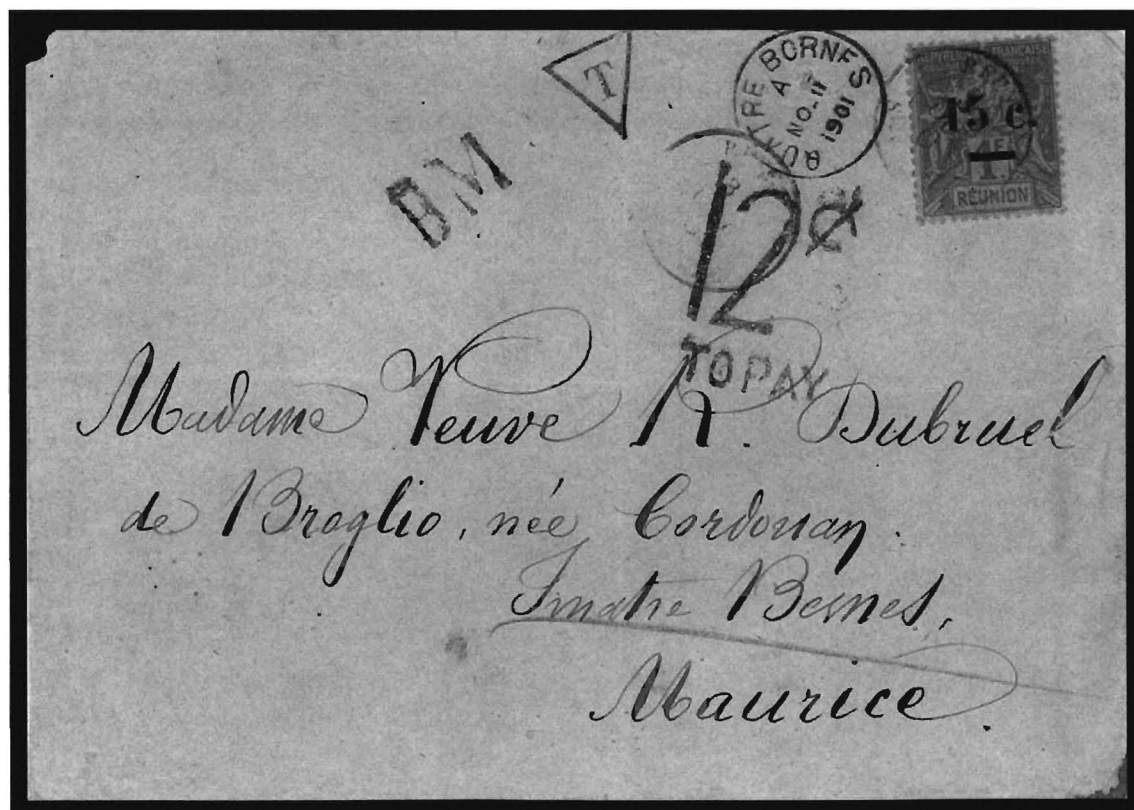 T
QUATRE BORNES
A
NO 11
1901
15 c.
1F
RÉUNION
BM
12 c
TO PAY
Madame Veuve R. Dubruel
de Broglio, née Cordouan.
Quatre Bornes,
Maurice.